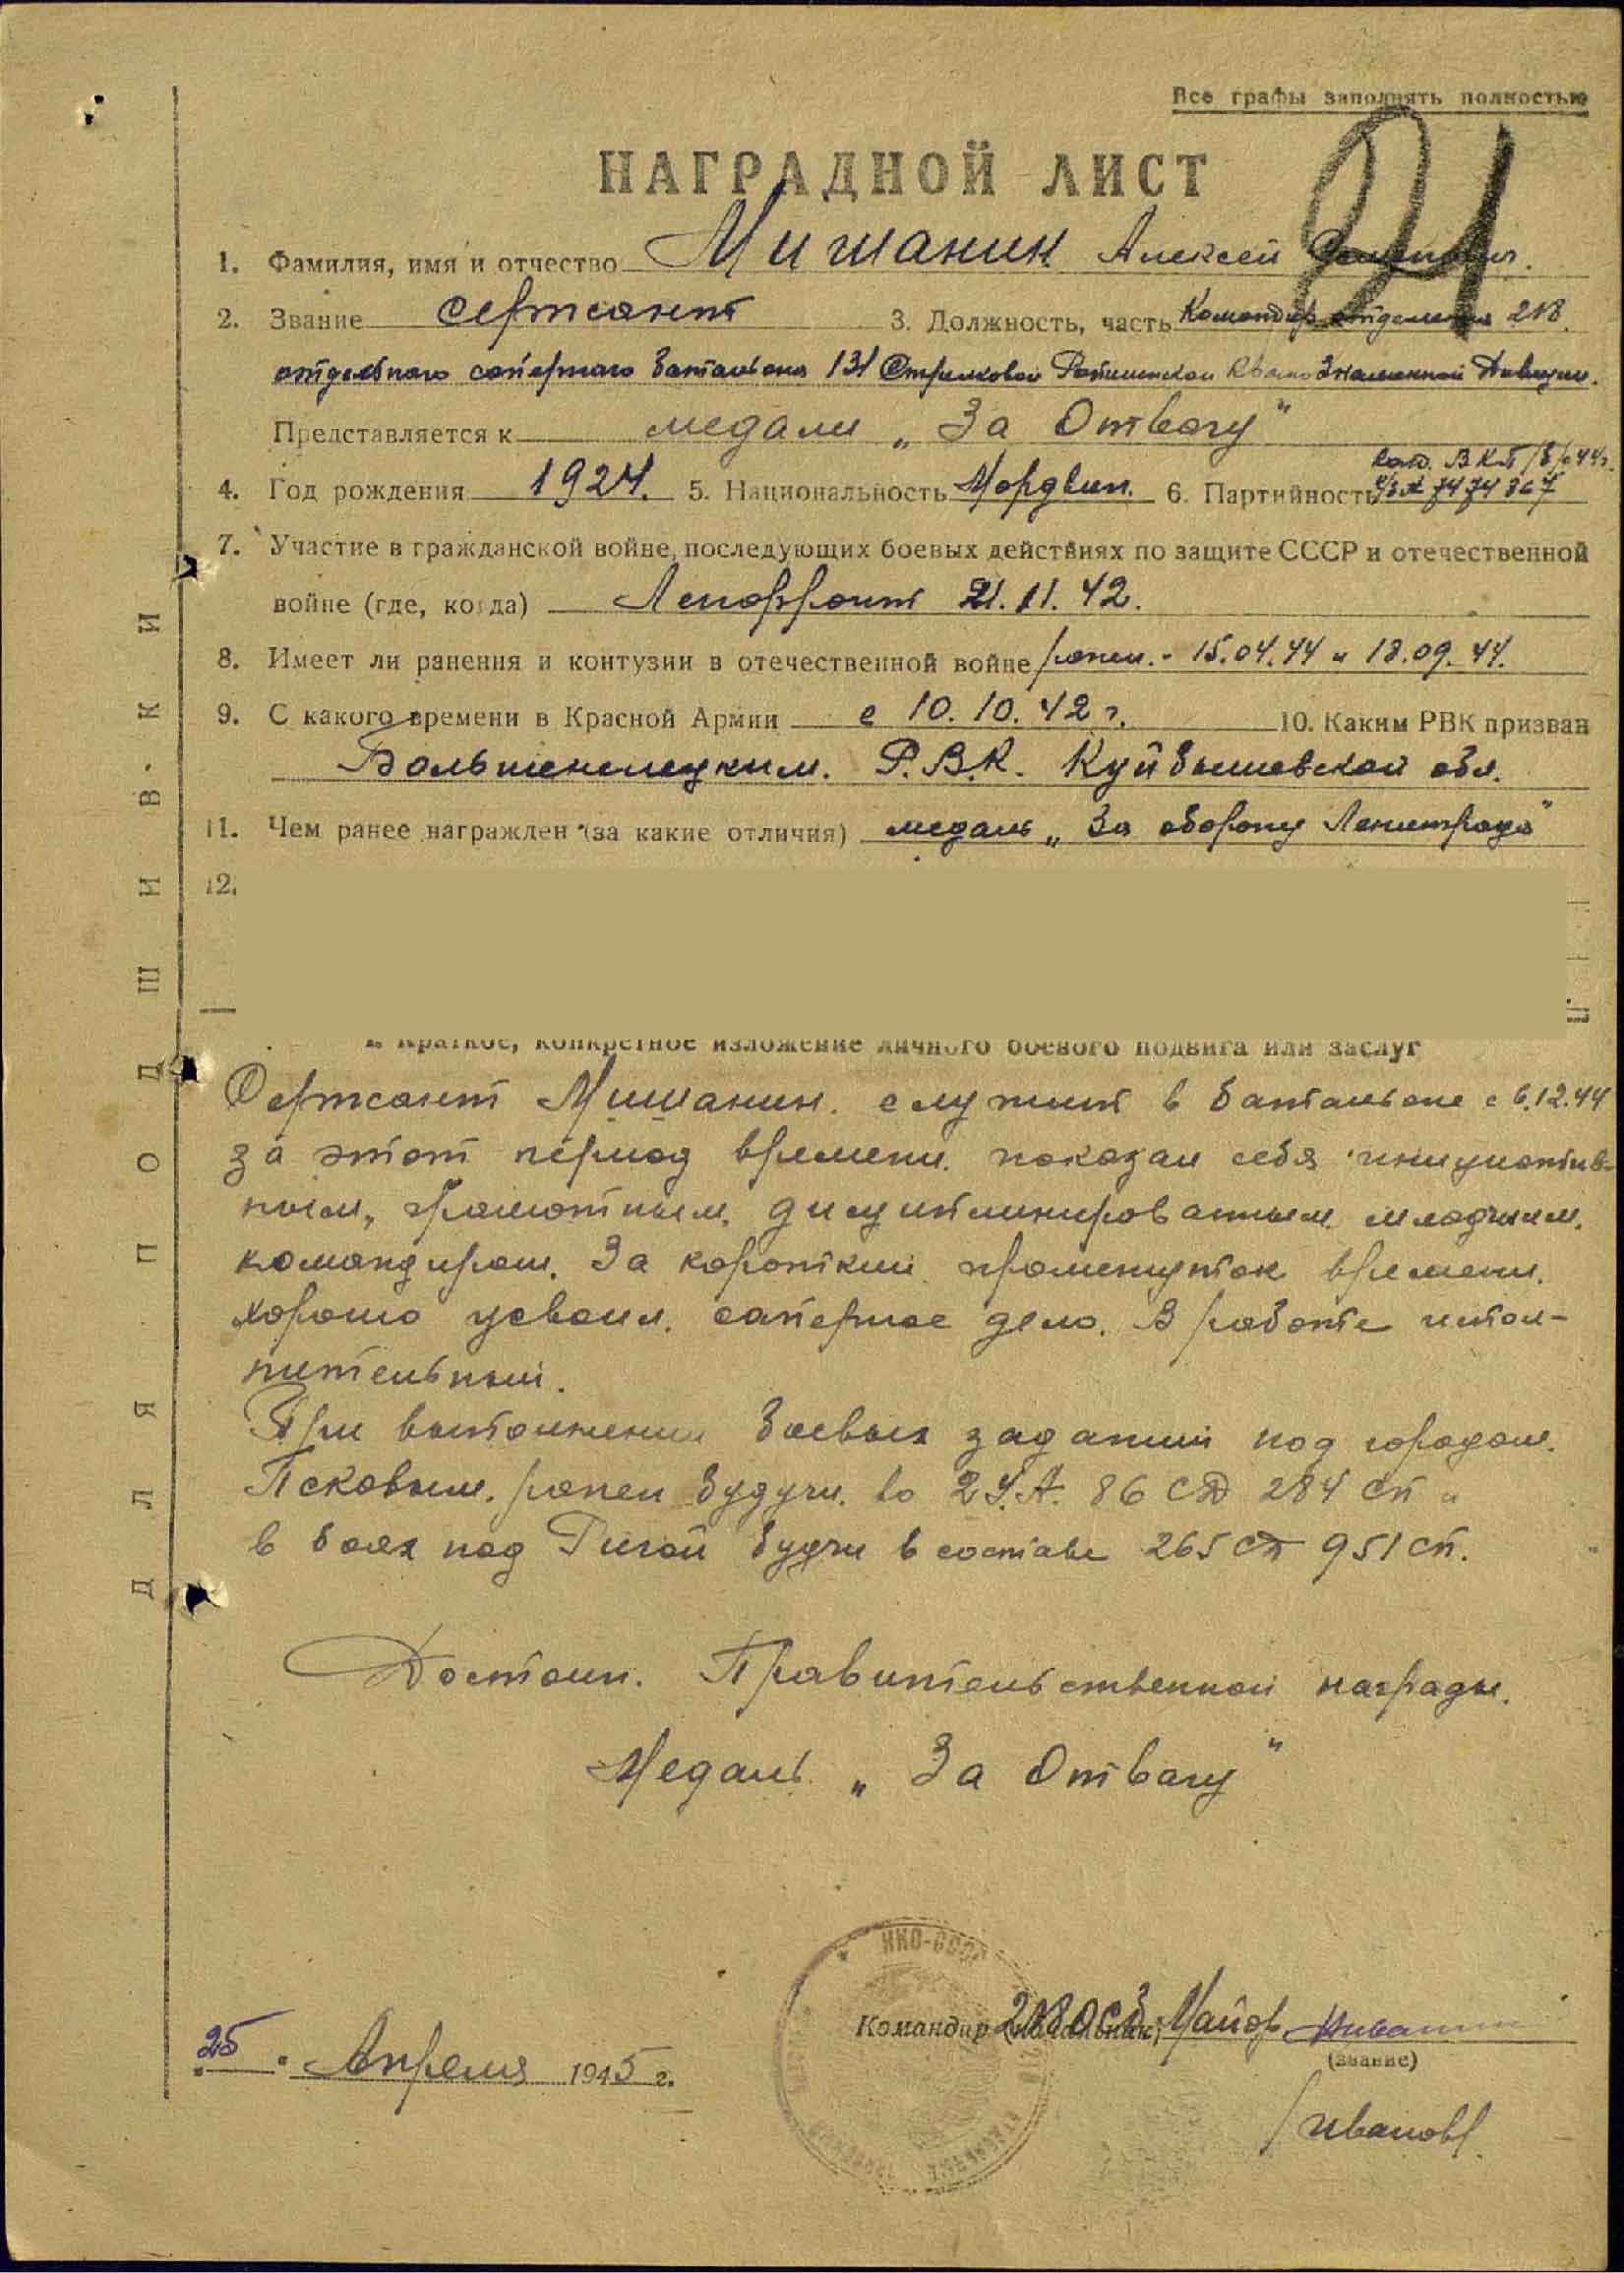 Все графы заполнять полностью
21
НАГРАДНОЙ ЛИСТ
1. Фамилия, имя и отчество Мишанин Алексей
2. Звание сержант 3. Должность, часть Командир отделения 218
отдельного саперного батальона 131 Стрелковой Ропшинской Краснознаменной Дивизии.
Представляется к медали „За Отвагу"
4. Год рождения 1924. 5. Национальность Мордвин. 6. Партийность канд. ВКП/б/ с 44г.
к/к № 7474867
7. Участие в гражданской войне, последующих боевых действиях по защите СССР и отечественной
войне (где, когда) Ленфронт 21.11.42.
8. Имеет ли ранения и контузии в отечественной войне ранен. - 15.04.44 и 18.09.44.
9. С какого времени в Красной Армии с 10.10.42 г. 10. Каким РВК призван
Р.В.К. Куйбышевской обл.
11. Чем ранее награжден (за какие отличия) медаль „За оборону Ленинграда"
12.
Краткое, конкретное изложение личного боевого подвига или заслуг
Сержант Мишанин. служит в батальоне с 6.12.44
за этот период времени. показал себя инициатив-
ным, грамотным, дисциплинированным младшим.
командиром. За короткий промежуток времени.
хорошо усвоил. саперное дело. В работе испол-
нительный.
При выполнении боевых заданий под городом.
Псковым. ранен будучи. во 2У.А. 86 СД 284 СП и
в боях под Ригой будучи в составе 265 СД 951 СП.
Достоин. Правительственной награды.
Медаль „За Отвагу"
НКО-СССР
Командир (начальник) 218 ОСБ Майор
(звание)
25 Апреля 1945 г.
/Иванов/
ДЛЯ ПОДШИВКИ